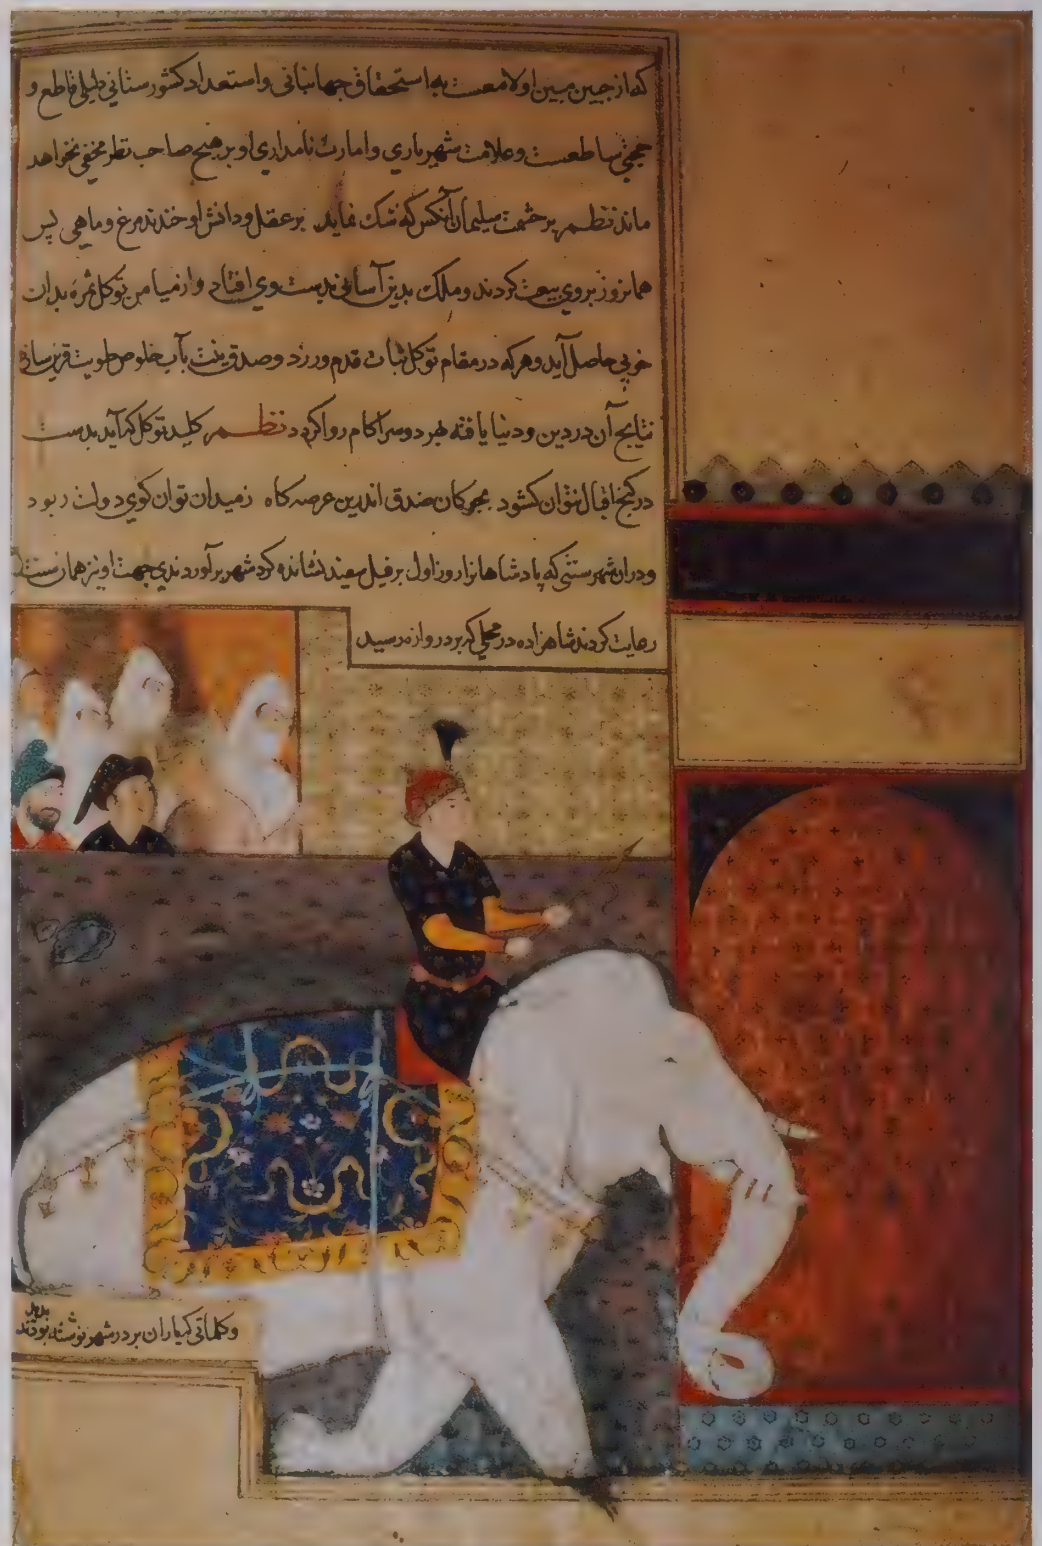 که از جبین مبین او لامعست به استحقاق جهانبانی و استعداد کشورستانی دلیلی قاطع و
حجتی ساطعست و علامت شهریاری و امارت نامداری او بر هیچ صاحب نظر مخفی نخواهد
ماند نظم بر حشمت سلیمان آنکس که شک نماید بر عقل و دانش او خندند مرغ و ماهی پس
همانروز بروی بیعت کردند و ملک بدین آسانی بدست وی افتاد و از میامن توکل ثمره بدان
خوبی حاصل آید و هر که در مقام توکل ثبات قدم ورزد و صدق نیت بآب خلوص طویت قرین سازد
نتایج آن در دین و دنیا یافته بهر دو سرا کام روا کردد نظم کلید توکل کر آید بدست
در کنج اقبال توان کشود بچوکان صدق اندرین عرصه کاه ز میدان توان کوی دولت ربود
و در آن شهر سنتی که پادشاهانرا روز اول بر فیل سفید نشانده کرد شهر برآوردندی جهت او نیز همان سنت
رعایت کردند شاهزاده در محلی که بر دروازه رسید
و کلماتی که یاران بر در شهر نوشته بودند